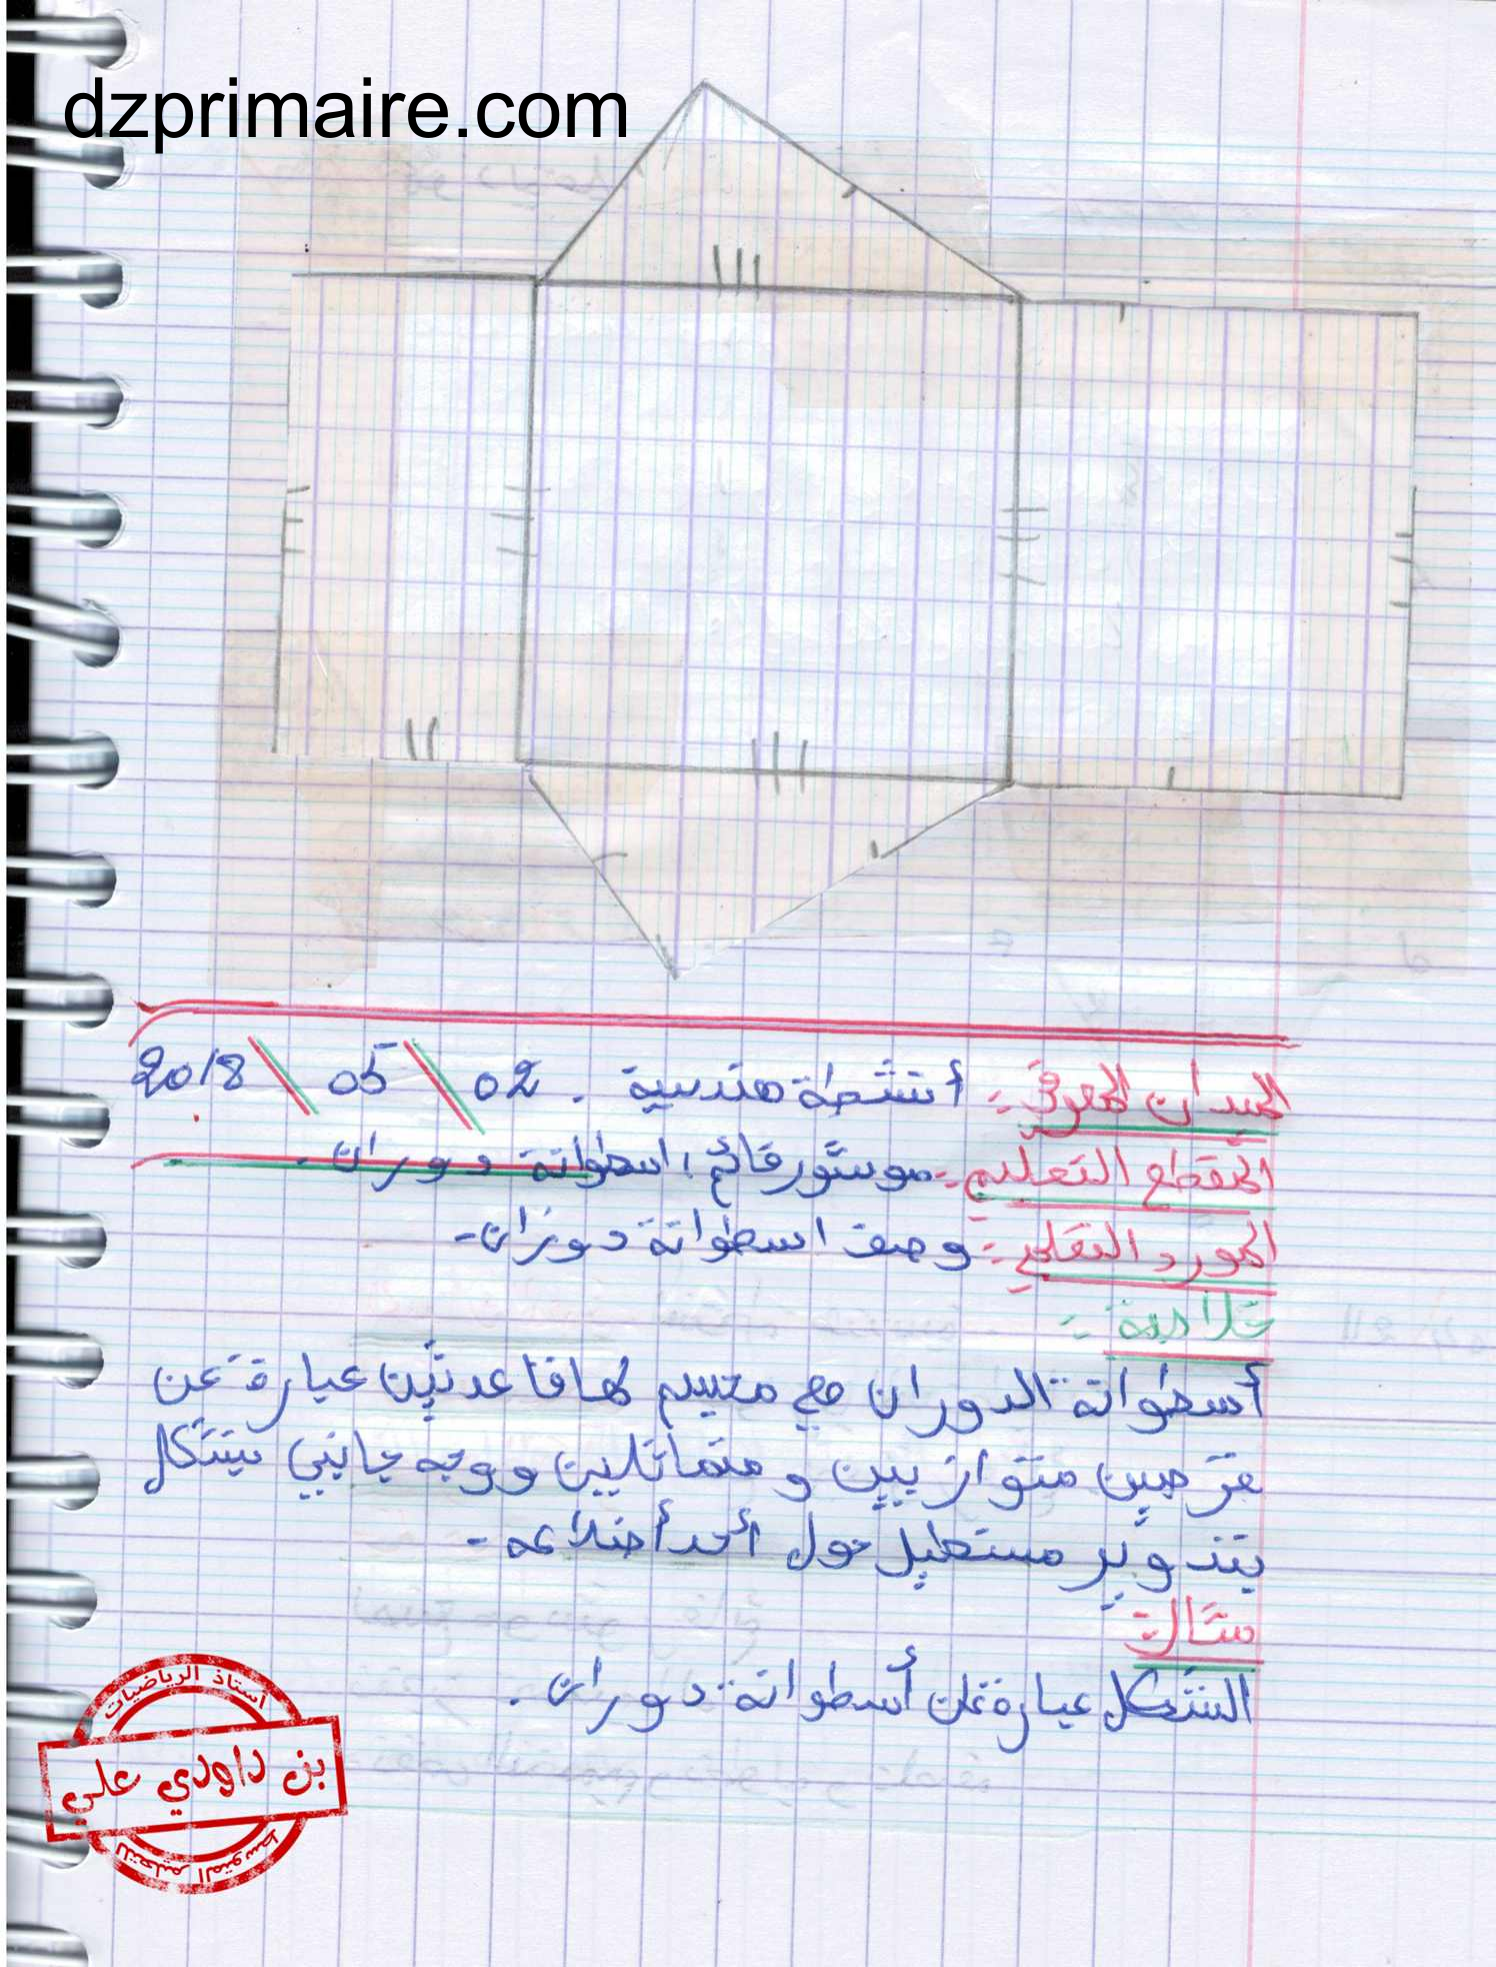 dzprimaire.com
الميدان المعرفي :- أنشطة هندسية . 02 \ 05 \ 2018
المقطع التعليمي :- موشور قائم ، اسطوانة دوران .
المورد التعلمي :- وصف اسطوانة دوران -
خلاصة :-
أسطوانة الدوران هي مجسم لها قاعدتين عبارة عن
قرصين متوازيين و متماثلين ووجه جانبي يتشكل
بتدوير مستطيل حول أحد أضلاعه -
مثال :-
الشكل عبارة عن أسطوانة دوران .
أستاذ الرياضيات
بن داودي علي
للتعليم المتوسط